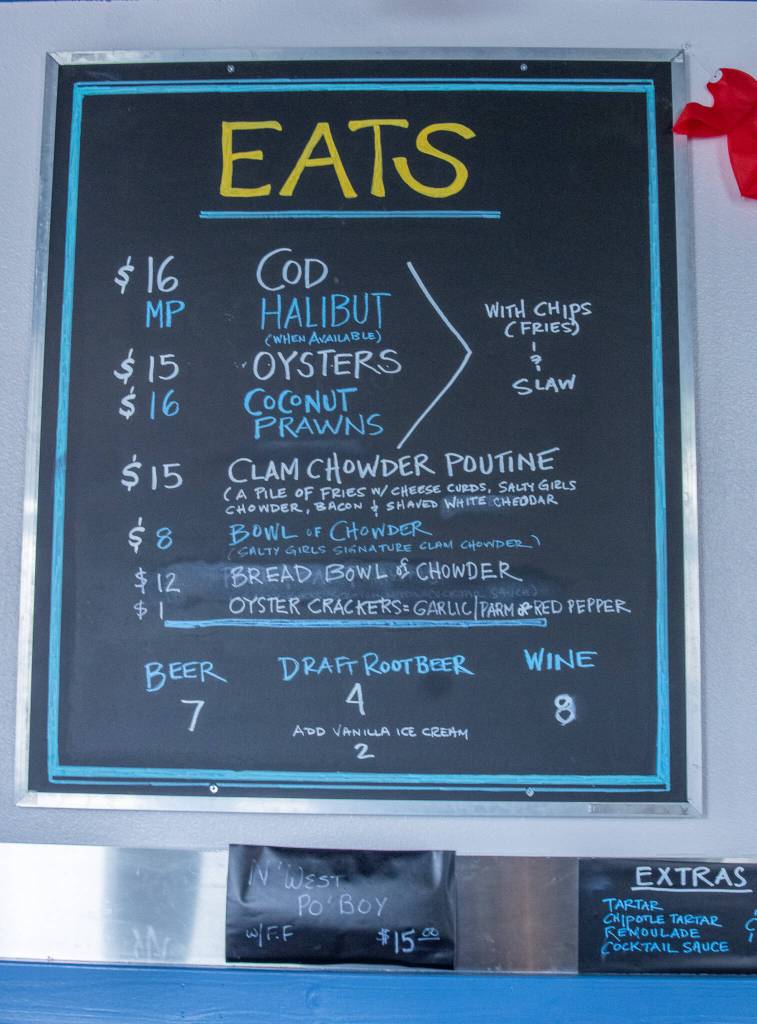 EATS
$16 COD
MP HALIBUT
(WHEN AVAILABLE)
$15 OYSTERS
$16 COCONUT
PRAWNS
WITH CHIPS
(FRIES)
&
SLAW
$15 CLAM CHOWDER POUTINE
(A PILE OF FRIES W/ CHEESE CURDS, SALTY GIRLS
CHOWDER, BACON & SHAVED WHITE CHEDDAR
$8 BOWL OF CHOWDER
(SALTY GIRLS SIGNATURE CLAM CHOWDER)
$12 BREAD BOWL of CHOWDER
$1 OYSTER CRACKERS = GARLIC/PARM or RED PEPPER
BEER DRAFT ROOTBEER WINE
7 4 8
ADD VANILLA ICE CREAM
2
N'WEST
PO'BOY
W/F.F $15.00
EXTRAS
TARTAR
CHIPOTLE TARTAR
REMOULADE
COCKTAIL SAUCE